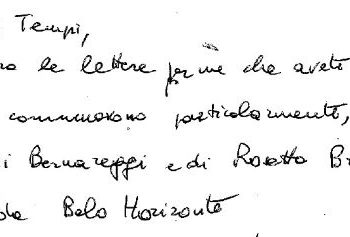 Tempi,
le lettere per me che avete
commuovono particolarmente,
i Bernareggi e di Rosetta Br
da Belo Horizonte